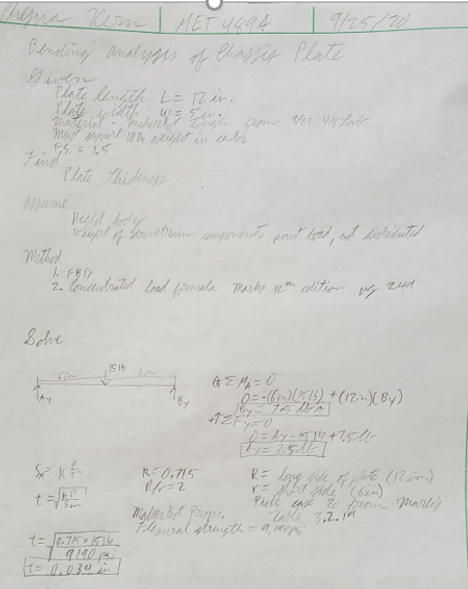 Kern | MET 489A | 9/25/20
Bending analysis of Chassis Plate
Given
Plate length L = 12 in.
Plate width w = in.
Material - from 9/23
Must support 10 lb weight in center
F.S. = 1.5
Find
Plate Thickness
Assume
Rigid body
Weight of drivetrain components point load, not distributed
Method
1. FBD
2. Concentrated load formula Marks 12th edition pg
Solve
6in 15lb 6in
Ay By
ΣMA = 0
0 = -(6in)(15lb) + (12in)(By)
By = 7.5 lb
+↑ΣFy = 0
0 = Y - 15lb + 7.5lb
Ay = 7.5lb
K = 0.715
R/r = 2
R = long side of plate (12in)
r = short side (6in)
case 20 from Marks
Table 3.2.19
Material Props.
Flexural strength = 9,190psi
t = √(0.715 × 15lb / 9190 psi)
t = 0.034 in